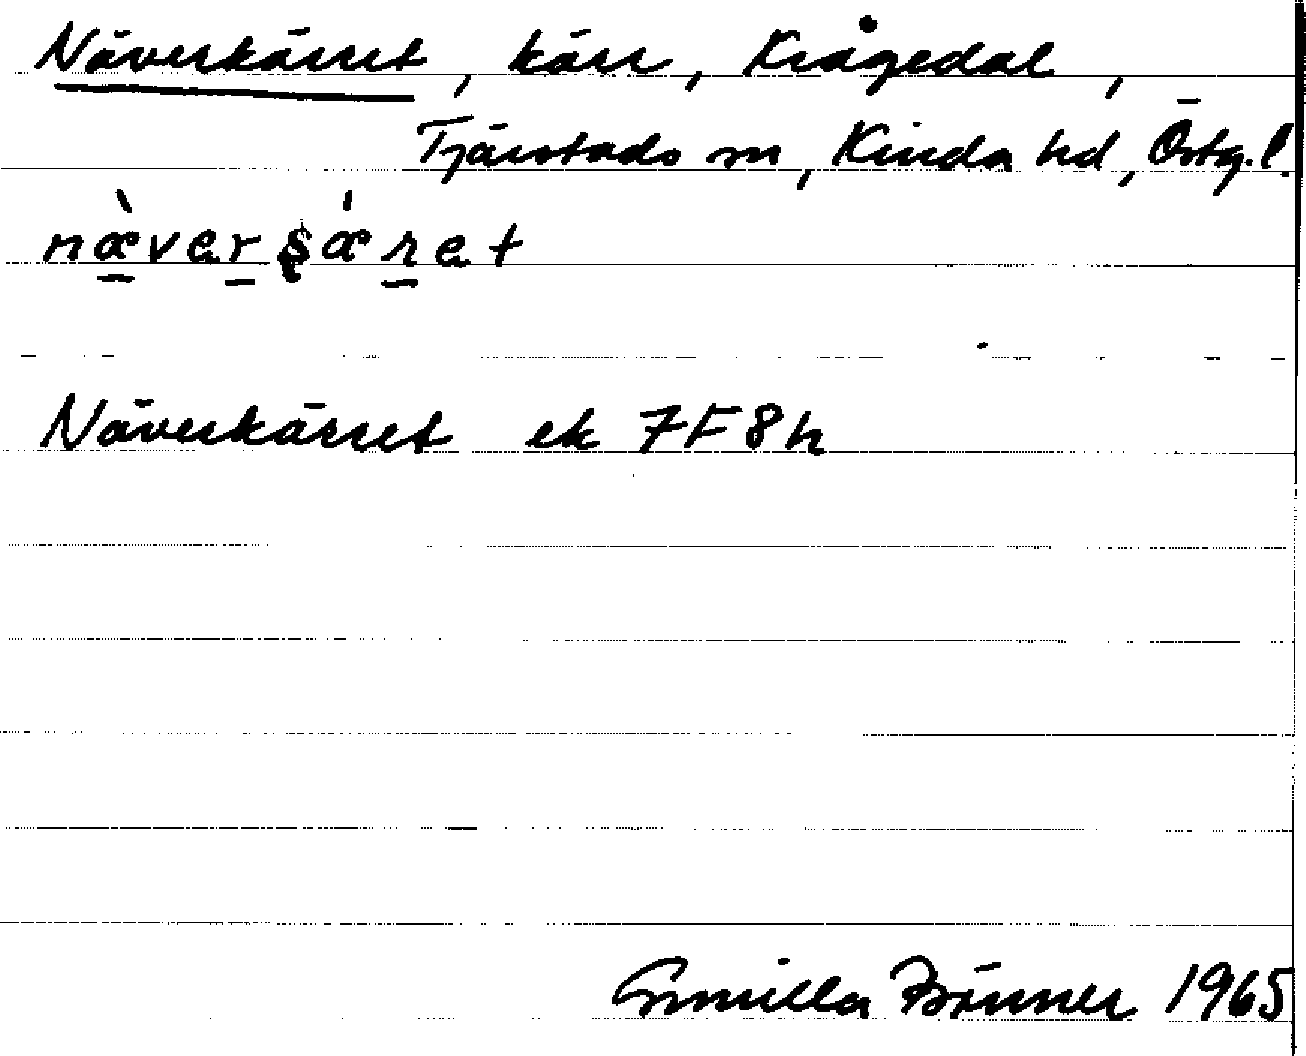 Näverkärret, kärr, Krågedal,
Tjärstads sn, Kinda hd, Östg.l.
nä̀verʂǽret
Näverkärret ek 7F8h
Gunilla Brünner 1965